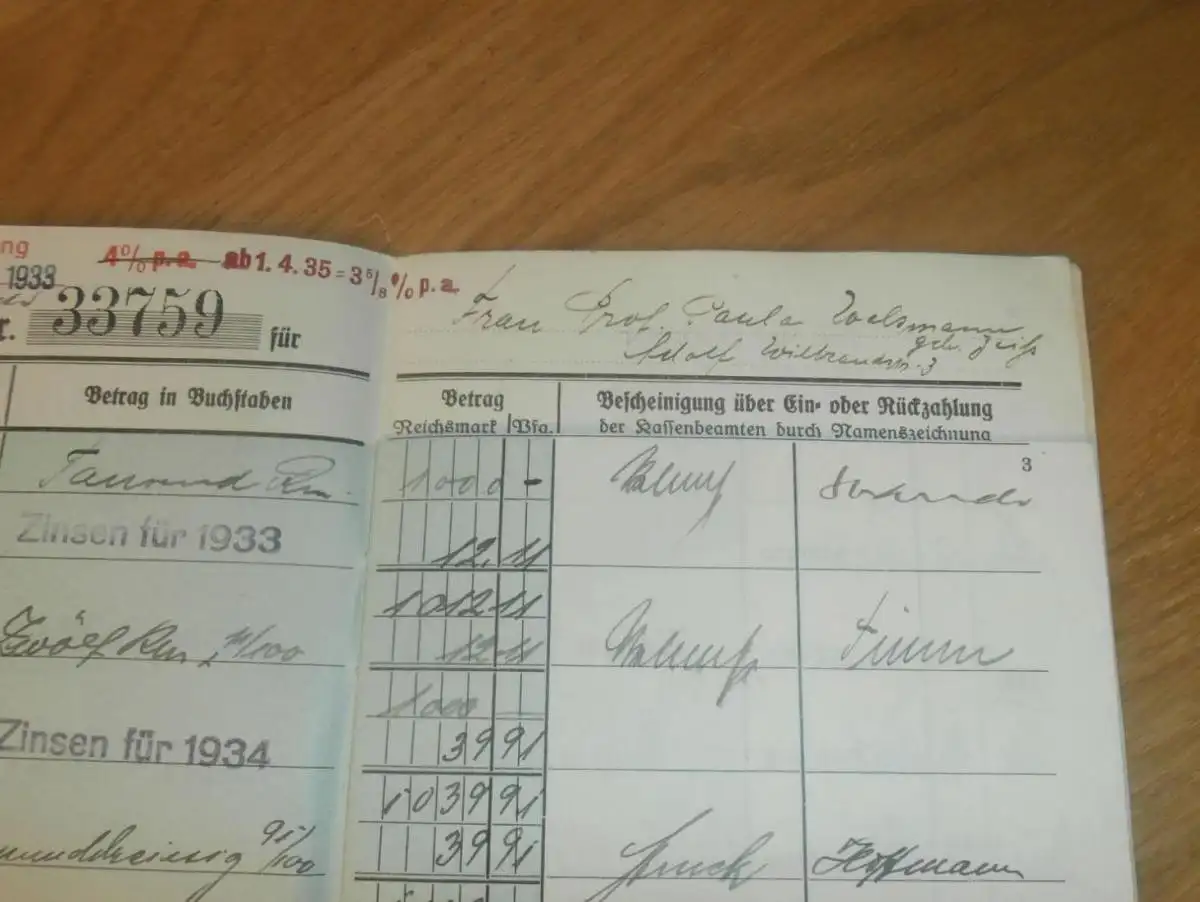 ng
4% p.a. ab 1. 4. 35 = 3 5/8 % p.a.
1933
r. 33759 für
Frau Prof. Paula
geb. Zeiss
Adolf Wilbrandtstr. 3
Betrag in Buchstaben
Betrag
Reichsmark Pfg.
Bescheinigung über Ein- oder Rückzahlung
der Kassenbeamten durch Namenszeichnung
3
Tausend Rm. 1000 -
Zinsen für 1933
12.11
1012 11
Zwölf Rm 11/100 12.11 Timm
1000
Zinsen für 1934
39 91
1039 91
unddreissig 91/100 39 91 Struck Hoffmann